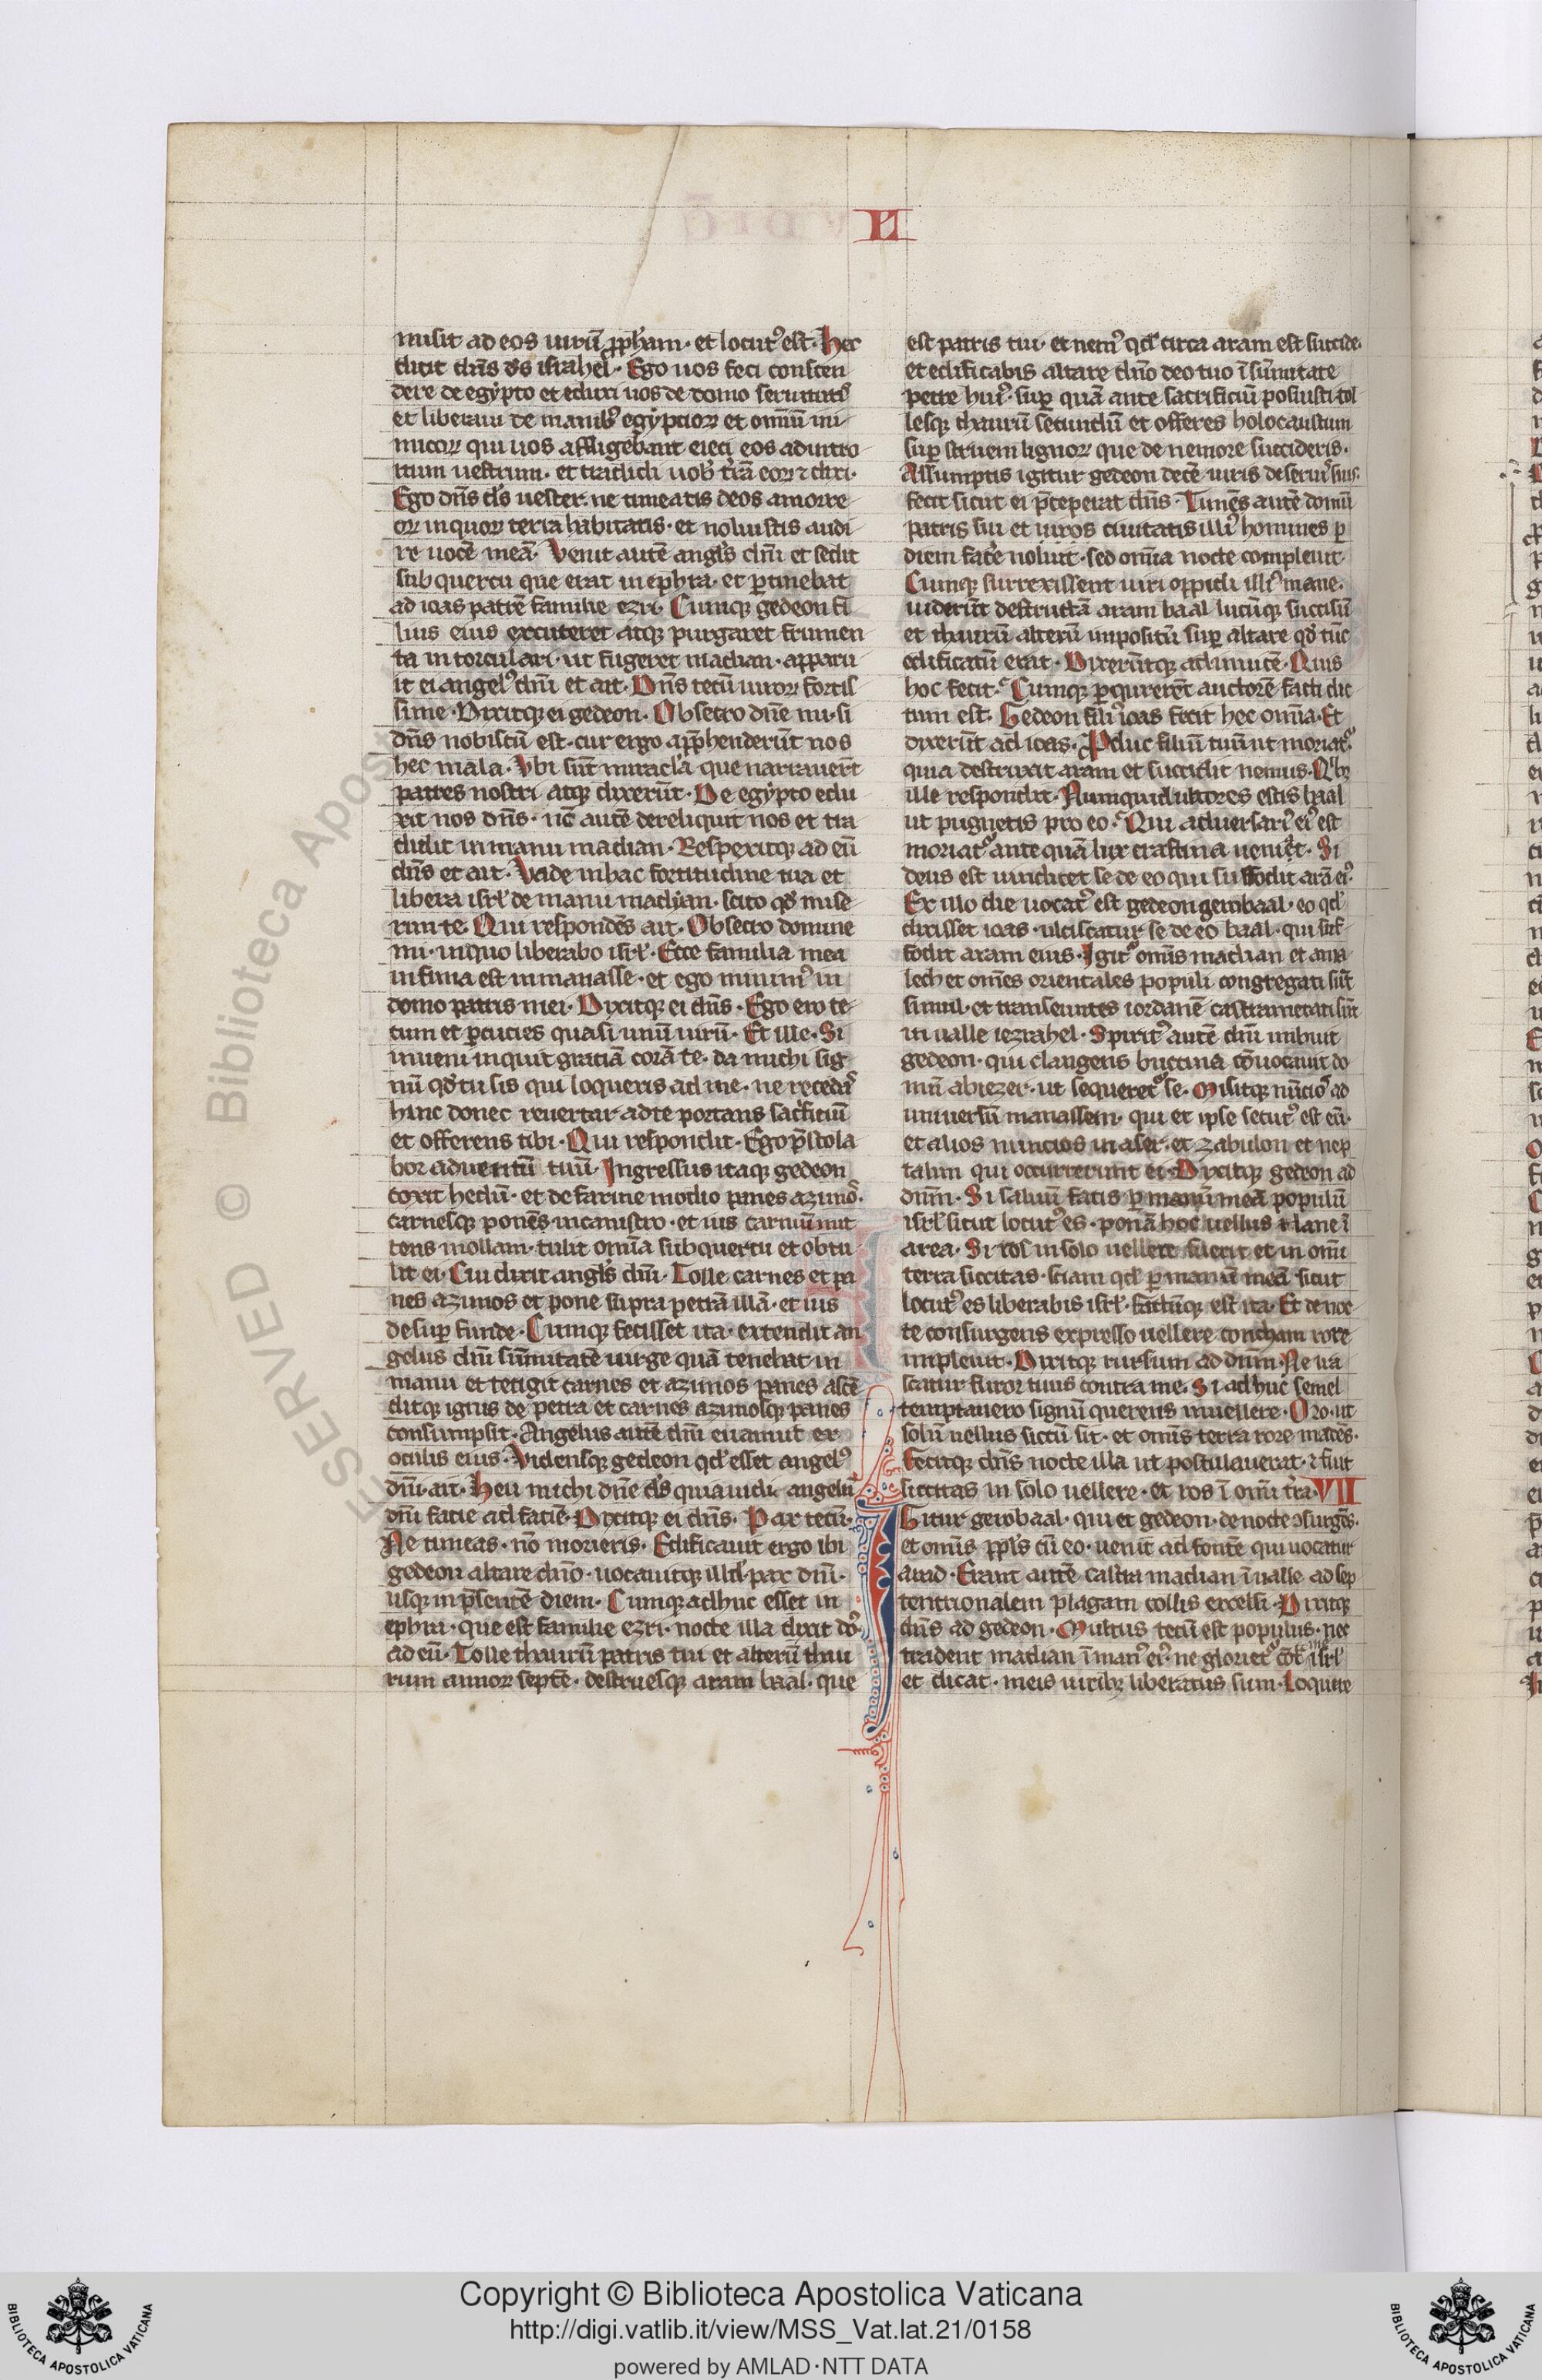 LI
misit ad eos uirū ꝓph̄am · et locut᷒ est · Hec
dicit dn̄s ds̄ israhel · Ego uos feci conscen
dere de egypto et eduxi uos de domo seruitutis
et liberaui de manib᷒ egyptioꝝ et omniū ini
micoꝝ qui uos affligebant eieci eos ad intro
itum uestrum · et tradidi uob̄ t̄rā eoꝝ ⁊ dixi ·
Ego dn̄s ds̄ uester · ne timeatis deos amorre
oꝝ in quoꝝ terra habitatis · et noluistis audi
re uocē meā · Venit autē angl̄s dn̄i et sedit
sub quercu que erat in ephra · et ꝑtinebat
ad ioas patrē familie ezri · Cumqꝫ gedeon fi
lius eius excuteret atqꝫ purgaret frumen
ta in torculari · ut fugeret madian · apparu
it ei angel᷒ dn̄i et ait · Dn̄s tecū uiroꝝ fortis
sime · Dixitqꝫ ei gedeon · Obsecro dn̄e mi · si
dn̄s nobiscū est · cur ergo app̄henderūt nos
hec mala · Vbi sūt miracl̄a que narrauerūt
patres nostri atqꝫ dixerūt · De egypto edu
xit nos dn̄s · nc̄ autē dereliquit nos et tra
didit in manu madian · Respexitqꝫ ad eū
dn̄s et ait · Vade in hac fortitudine tua et
libera isrl̄ de manu madyan · scito qd̄ mise
rim te · Qui respondēs ait · Obsecro domine
mi · in quo liberabo isrl̄ · Ecce familia mea
infima est in manasse · et ego minim᷒ in
domo patris mei · Dixitqꝫ ei dn̄s · Ego ero te
cum et ꝑcucies quasi unū uirū · Et ille · Si
inueni inquit gratiā corā te · da michi sig
nū qd̄ tu sis qui loqueris ad me · ne recedas
hinc donec reuertar ad te portans sacrificiū
et offerens tibi · Qui respondit · Ego p̄stola
bor aduentū tuū · Ingressus itaqꝫ gedeon
coxit hedū · et de farine modio panes azimos ·
carnesqꝫ ponēs in canistro · et ius carniū mit
tens in ollam · tulit omīa sub quercu et obtu
lit ei · Cui dixit angl̄s dn̄i · Tolle carnes et pa
nes azimos et pone supra petrā illā · et ius
desuꝑ funde · Cumqꝫ fecisset ita · extendit an
gelus dn̄i sūmitatē uirge quā tenebat in
manu et tetigit carnes et azimos panes ascē
ditqꝫ ignis de petra et carnes azimosqꝫ panes
consumpsit · Angelus autē dn̄i euanuit ex
oculis eius · Vidensqꝫ gedeon qd̄ esset angel᷒
dn̄i · ait · Heu michi dn̄e ds̄ quia uidi angelū
dn̄i facie ad faciē · Dixitqꝫ ei dn̄s · Pax tecū ·
Ne timeas · nō morieris · Edificauit ergo ibi
gedeon altare dn̄o · uocauitqꝫ illd̄ · pax dn̄i ·
usqꝫ in p̄sentē diem · Cumqꝫ adhuc esset in
ephra · que est familie ezri · nocte illa dixit dn̄s
ad eū · Tolle thaurū patris tui et alterū thau
rum annoꝝ septē · destruesqꝫ aram baal · que
est patris tui · et nem᷒ qd̄ circa aram est succide ·
et edificabis altare dn̄o deo tuo ī sūmitate
petre hui᷒ · suꝑ quā ante sacrificiū posuisti · tol
lesqꝫ thaurū secundū et offeres holocaustum
suꝑ struem lignoꝝ que de nemore succideris ·
Assumptis igitur gedeon decē uiris de seruis suis ·
fecit sicut ei p̄ceperat dn̄s · Timēs autē domū
patris sui et uiros ciuitatis illi᷒ homines ꝑ
diem face᷑ noluit · sed omīa nocte compleuit ·
Cumqꝫ surrexissent uiri oppidi illi᷒ mane ·
uiderūt destructā aram baal lucūqꝫ succisū
et thaurū alterū impositū suꝑ altare qd̄ tūc
edificatū erat · Dixerūtqꝫ ad inuicē · Quis
hoc fecit · Cumqꝫ ꝑquirerēt auctorē facti dic
tum est · Gedeon fili᷒ ioas fecit hec omīa · Et
dixerūt ad ioas · ꝓduc filiū tuū ut moriat᷑
quia destruxit aram et succidit nemus · Qibꝫ
ille respondit · Numquid ultores estis baal
ut pugnetis pro eo · Qui aduersari᷒ ei᷒ est
moriat᷑ ante quā lux crastina ueniet · Si
deus est uindicet se de eo qui suffodit arā ei᷒ ·
Ex illo die uocat᷒ est gedeon geroibaal · eo qd̄
dixisset ioas · ulciscatur se de eo baal · qui suf
fodit aram eius · Igit᷑ omīs madian et ama
lech et omēs orientales populi congregati sūt
simul · et transeuntes iordanē castrametati sūt
in ualle iezrahel · Spirit᷒ autē dn̄i induit
gedeon · qui clangens buccina cōuocauit do
mū abiezer · ut sequeret᷑ se · Misitqꝫ nūcios ad
uniuersū manassem · qui et ipse secut᷒ est eū ·
et alios nuncios in aser · et zabulon et nep
talim qui occurrerunt ei · Dixitqꝫ gedeon ad
dn̄m · Si saluū facis ꝑ manū meā populū
isrl̄ sicut locut᷒ es · ponā hoc uellus lane ī
area · Si ros in solo uellere fuerit et in omī
terra siccitas · sciam qd̄ ꝑ manū meā sicut
locut᷒ es liberabis isrl̄ · factūqꝫ est ita · Et de noc
te consurgens expresso uellere concham rore
impleuit · Dixitqꝫ rursum ad dn̄m · Ne ira
scatur furor tuus contra me · Si adhuc semel
temptauero signū querens in uellere · Oro · ut
solū uellus siccū sit · et omīs terra rore mades ·
Fecitqꝫ dn̄s nocte illa ut postulauerat · ⁊ fuit
siccitas in solo uellere · et ros ī omī t̄ra · VII
IGitur geroibaal · qui et gedeon · de nocte ɔsurgēs ·
et omīs ppl̄s cū eo · uenit ad fontē qui uocatur
arad · Erant autē castra madian ī ualle ad sep
tentrionalem plagam collis excelsi · Dixitqꝫ
dn̄s ad gedeon · Multus tecū est populus · nec
tradent madian ī man᷒ ei᷒ · ne gloriet᷑ cōt̄ me isrl̄
et dicat · meis uiribꝫ liberatus sum · Loquere
Copyright © Biblioteca Apostolica Vaticana
http://digi.vatlib.it/view/MSS_Vat.lat.21/0158
powered by AMLAD·NTT DATA
BIBLIOTECA APOSTOLICA VATICANA
BIBLIOTECA APOSTOLICA VATICANA